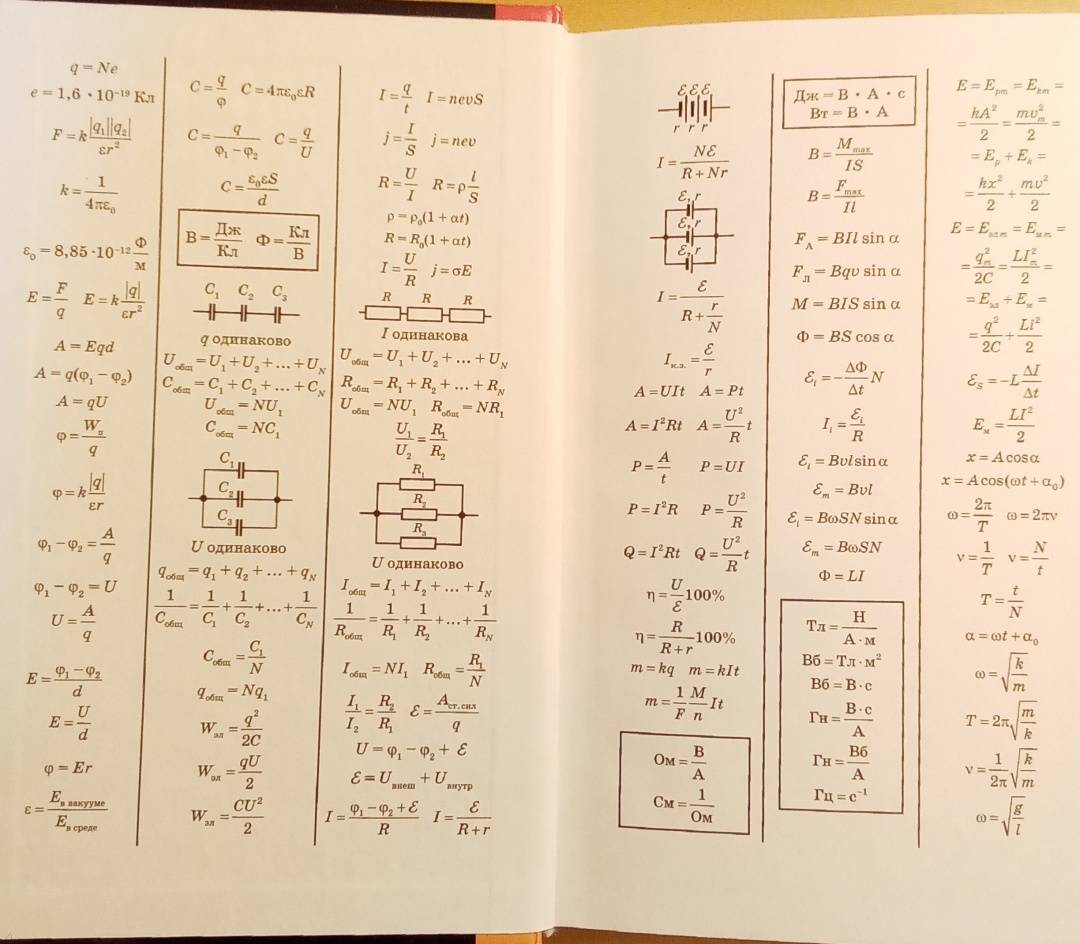 q = Ne
e = 1,6 · 10⁻¹⁹ Кл
F = k |q₁||q₂| / εr²
k = 1 / 4πε₀
ε₀ = 8,85 · 10⁻¹² Ф/м
E = F/q   E = k |q| / εr²
A = Eqd
A = q(φ₁ − φ₂)
A = qU
φ = Wₚ / q
φ = k |q| / εr
φ₁ − φ₂ = A/q
φ₁ − φ₂ = U
U = A/q
E = (φ₁ − φ₂) / d
E = U/d
φ = Er
ε = E в вакууме / E в среде
C = q/φ   C = 4πε₀εR
C = q / (φ₁ − φ₂)   C = q/U
C = ε₀εS / d
В = Дж/Кл   Ф = Кл/В
C₁ C₂ C₃
q одинаково
U общ = U₁ + U₂ + ... + U_N
C общ = C₁ + C₂ + ... + C_N
U общ = NU₁
C общ = NC₁
C₁
C₂
C₃
U одинаково
q общ = q₁ + q₂ + ... + q_N
1/C общ = 1/C₁ + 1/C₂ + ... + 1/C_N
C общ = C₁/N
q общ = Nq₁
W эл = q² / 2C
W эл = qU / 2
W эл = CU² / 2
I = q/t   I = nevS
j = I/S   j = nev
R = U/I   R = ρ l/S
ρ = ρ₀(1 + αt)
R = R₀(1 + αt)
I = U/R   j = σE
R R R
I одинакова
U общ = U₁ + U₂ + ... + U_N
R общ = R₁ + R₂ + ... + R_N
U общ = NU₁   R общ = NR₁
U₁/U₂ = R₁/R₂
R₁
R₂
R₃
U одинаково
I общ = I₁ + I₂ + ... + I_N
1/R общ = 1/R₁ + 1/R₂ + ... + 1/R_N
I общ = NI₁   R общ = R₁/N
I₁/I₂ = R₂/R₁   ℰ = A ст. сил / q
U = φ₁ − φ₂ + ℰ
ℰ = U внеш + U внутр
I = (φ₁ − φ₂ + ℰ) / R   I = ℰ / (R + r)
ℰ ℰ ℰ
r r r
I = Nℰ / (R + Nr)
ℰ, r
ℰ, r
ℰ, r
I = ℰ / (R + r/N)
I к.з. = ℰ/r
A = UIt   A = Pt
A = I²Rt   A = U²/R t
P = A/t   P = UI
P = I²R   P = U²/R
Q = I²Rt   Q = U²/R t
η = U/ℰ 100%
η = R / (R + r) 100%
m = kq   m = kIt
m = 1/F M/n It
Ом = В/А
См = 1/Ом
Дж = В · А · с
Вт = В · А
B = M max / IS
B = F max / Il
F А = BIl sin α
F Л = Bqv sin α
M = BIS sin α
Ф = BS cos α
ℰᵢ = − ΔФ/Δt N
Iᵢ = ℰᵢ/R
ℰᵢ = Bvl sin α
ℰₘ = Bvl
ℰᵢ = BωSN sin α
ℰₘ = BωSN
Ф = LI
Тл = Н / А · м
Вб = Тл · м²
Вб = В · с
Гн = В · с / А
Гн = Вб/А
Гц = с⁻¹
E = E pm = E km =
= kA²/2 = mv²ₘ/2 =
= E p + E k =
= hx²/2 + mv²/2
E = E элm = E мm =
= q²ₘ/2C = LI²ₘ/2 =
= E эл + E м =
= q²/2C + Li²/2
ℰ S = −L ΔI/Δt
E м = LI²/2
x = A cos α
x = A cos(ωt + α₀)
ω = 2π/T   ω = 2πν
ν = 1/T   ν = N/t
T = t/N
α = ωt + α₀
ω = √(k/m)
T = 2π√(m/k)
ν = 1/2π √(k/m)
ω = √(g/l)